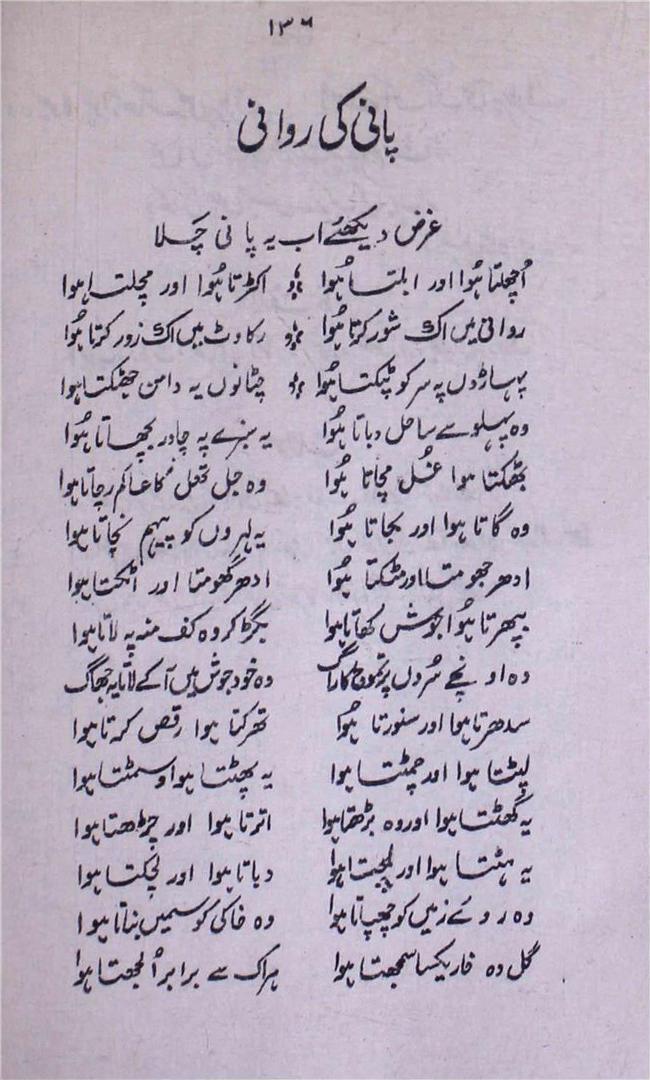 ۱۳۶
پانی کی روانی
غرض دیکھئے اب یہ پانی چَلا
اُچھلتا ہُوا اور ابلتا ہُوا ؛ اکڑتا ہُوا اور مچلتا ہوا
روانی میں اک شور کرتا ہُوا ؛ رکاوٹ میں اک زور کرتا ہُوا
پہاڑوں پہ سر کو پٹکتا ہُوا ؛ چٹانوں پہ دامن جھٹکتا ہوا
وہ پہلوئے ساحل دباتا ہُوا یہ سبزے پہ چادر بچھاتا ہُوا
بھٹکتا ہوا غُل مچاتا ہُوا وہ جل تھل کا عالم رچاتا ہوا
وہ گاتا ہوا اور بجاتا ہُوا یہ لہروں کو پیہم نچاتا ہوا
ادھر جھومتا اور مٹکتا ہُوا ادھر گھومتا اور اٹکتا ہوا
بپھرتا ہُوا جوش کھاتا ہوا بگڑ کر وہ کف منہ پہ لاتا ہوا
وہ اونچے سُروں پر تموج کا راگ وہ خود جوش میں آ کے لانا یہ جھاگ
سدھرتا ہوا اور سنورتا ہُوا تھرکتا ہوا رقص کرتا ہوا
لپٹتا ہوا اور چمٹتا ہوا یہ پھٹتا ہوا وہ سمٹتا ہوا
یہ گھٹتا ہوا اور وہ بڑھتا ہوا اترتا ہوا اور چڑھتا ہوا
یہ ہٹتا ہوا اور لچتا ہوا دباتا ہوا اور لچکتا ہوا
وہ روئے زمیں کو چھپاتا ہوا وہ خاکی کو سیمیں بناتا ہوا
گل وہ خار یکسا سمجھتا ہوا ہر اک سے برابر اُلجھتا ہوا